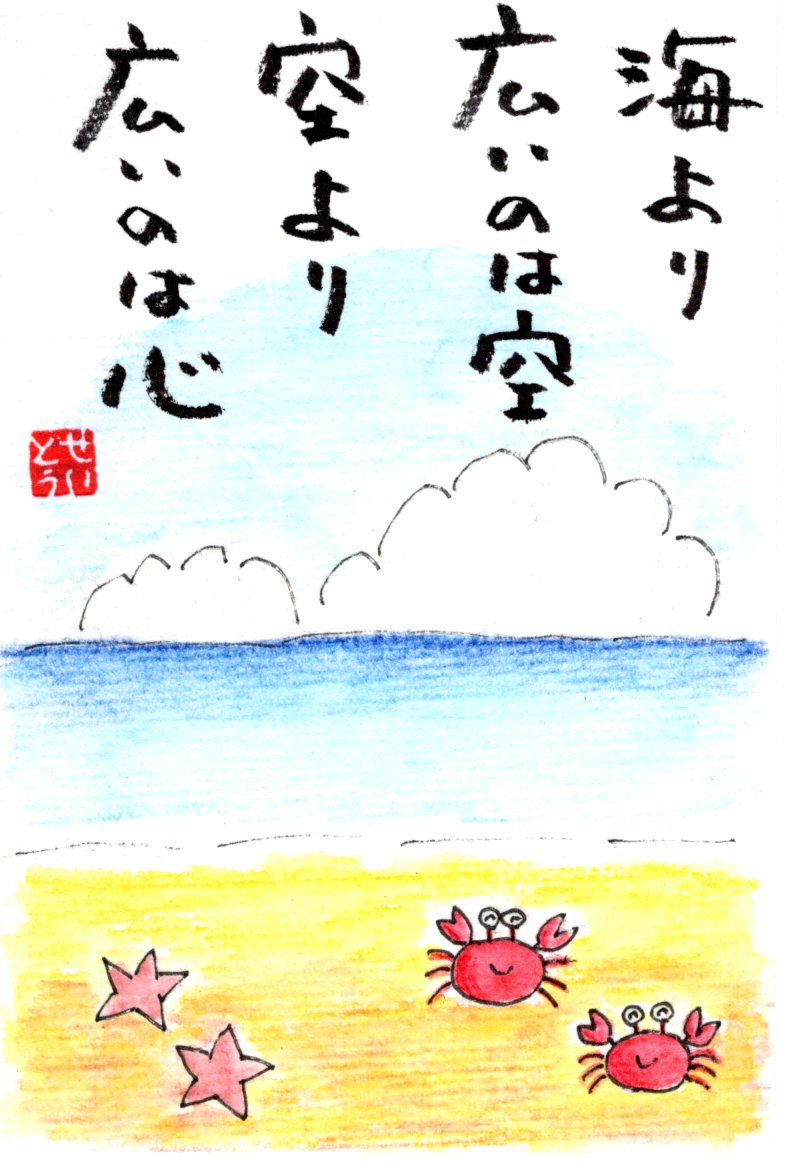 海より
広いのは空
空より
広いのは心
せい
どう